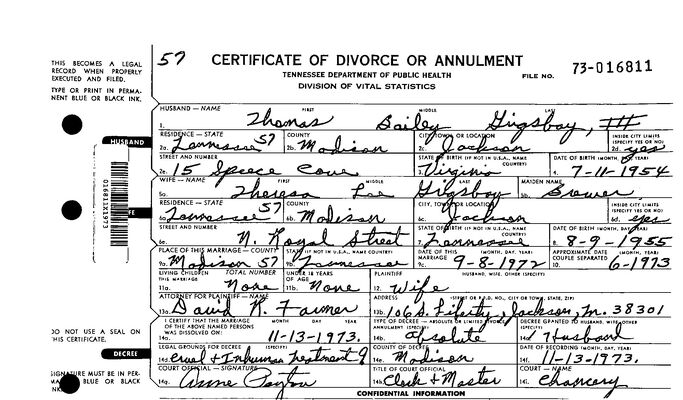 57 CERTIFICATE OF DIVORCE OR ANNULMENT
TENNESSEE DEPARTMENT OF PUBLIC HEALTH
DIVISION OF VITAL STATISTICS
FILE NO. 73-016811
THIS BECOMES A LEGAL
RECORD WHEN PROPERLY
EXECUTED AND FILED.
TYPE OR PRINT IN PERMA-
NENT BLUE OR BLACK
INK.
HUSBAND — NAME FIRST MIDDLE LAST
1. Thomas Bailey Gigsboy, III
HUSBAND
RESIDENCE — STATE COUNTY CITY, TOWN OR LOCATION INSIDE CITY LIMITS (SPECIFY YES OR NO)
2a. Tennessee 57 2b. Madison 2c. Jackson 2d. yes
STREET AND NUMBER STATE OF BIRTH (IF NOT IN U.S.A., NAME COUNTRY) DATE OF BIRTH (MONTH, DAY, YEAR)
2e. 15 Cove 3. Virginia 4. 7-11-1954
WIFE — NAME FIRST MIDDLE LAST MAIDEN NAME
5a. Theresa Lee Gigsboy 5b. Brewer
RESIDENCE — STATE COUNTY CITY, TOWN OR LOCATION INSIDE CITY LIMITS (SPECIFY YES OR NO)
6a. Tennessee 57 6b. Madison 6c. Jackson 6d. yes
016811X1973
STREET AND NUMBER STATE OF BIRTH (IF NOT IN U.S.A., NAME COUNTRY) DATE OF BIRTH (MONTH, DAY, YEAR)
6e. N. Royal Street 7. Tennessee 8. 8-9-1955
PLACE OF THIS MARRIAGE — COUNTY STATE (IF NOT IN U.S.A., NAME COUNTRY) DATE OF THIS MARRIAGE (MONTH, DAY, YEAR) APPROXIMATE DATE COUPLE SEPARATED (MONTH, YEAR)
9a. Madison 57 9b. Tennessee 9c. 9-8-1972 10. 6-1973
LIVING CHILDREN THIS MARRIAGE TOTAL NUMBER UNDER 18 YEARS OF AGE PLAINTIFF HUSBAND, WIFE, OTHER (SPECIFY)
11a. None 11b. None 12. Wife
ATTORNEY FOR PLAINTIFF — NAME ADDRESS (STREET OR R.F.D. NO., CITY OR TOWN, STATE, ZIP)
13a. David R. Farmer 13b. 106 S. Liberty, Jackson, Tn. 38301
I CERTIFY THAT THE MARRIAGE OF THE ABOVE NAMED PERSONS WAS DISSOLVED ON: MONTH DAY YEAR TYPE OF DECREE — ABSOLUTE OR LIMITED DIVORCE, ANNULMENT (SPECIFY) DECREE GRANTED TO HUSBAND, WIFE, OTHER (SPECIFY)
14a. 11-13-1973. 14b. absolute Husband
DO NOT USE A SEAL ON
THIS CERTIFICATE.
DECREE
LEGAL GROUNDS FOR DECREE (SPECIFY) COUNTY OF DECREE DATE OF RECORDING (MONTH, DAY, YEAR)
14d. cruel & Inhuman Treatment 14e. Madison 11-13-1973.
SIGNATURE MUST BE IN PER-
MANENT BLUE OR BLACK
INK.
COURT OFFICIAL — SIGNATURE TITLE OF COURT OFFICIAL COURT
14g. Anne Peyton 14h. Clerk & Master 14i. Chancery
CONFIDENTIAL INFORMATION